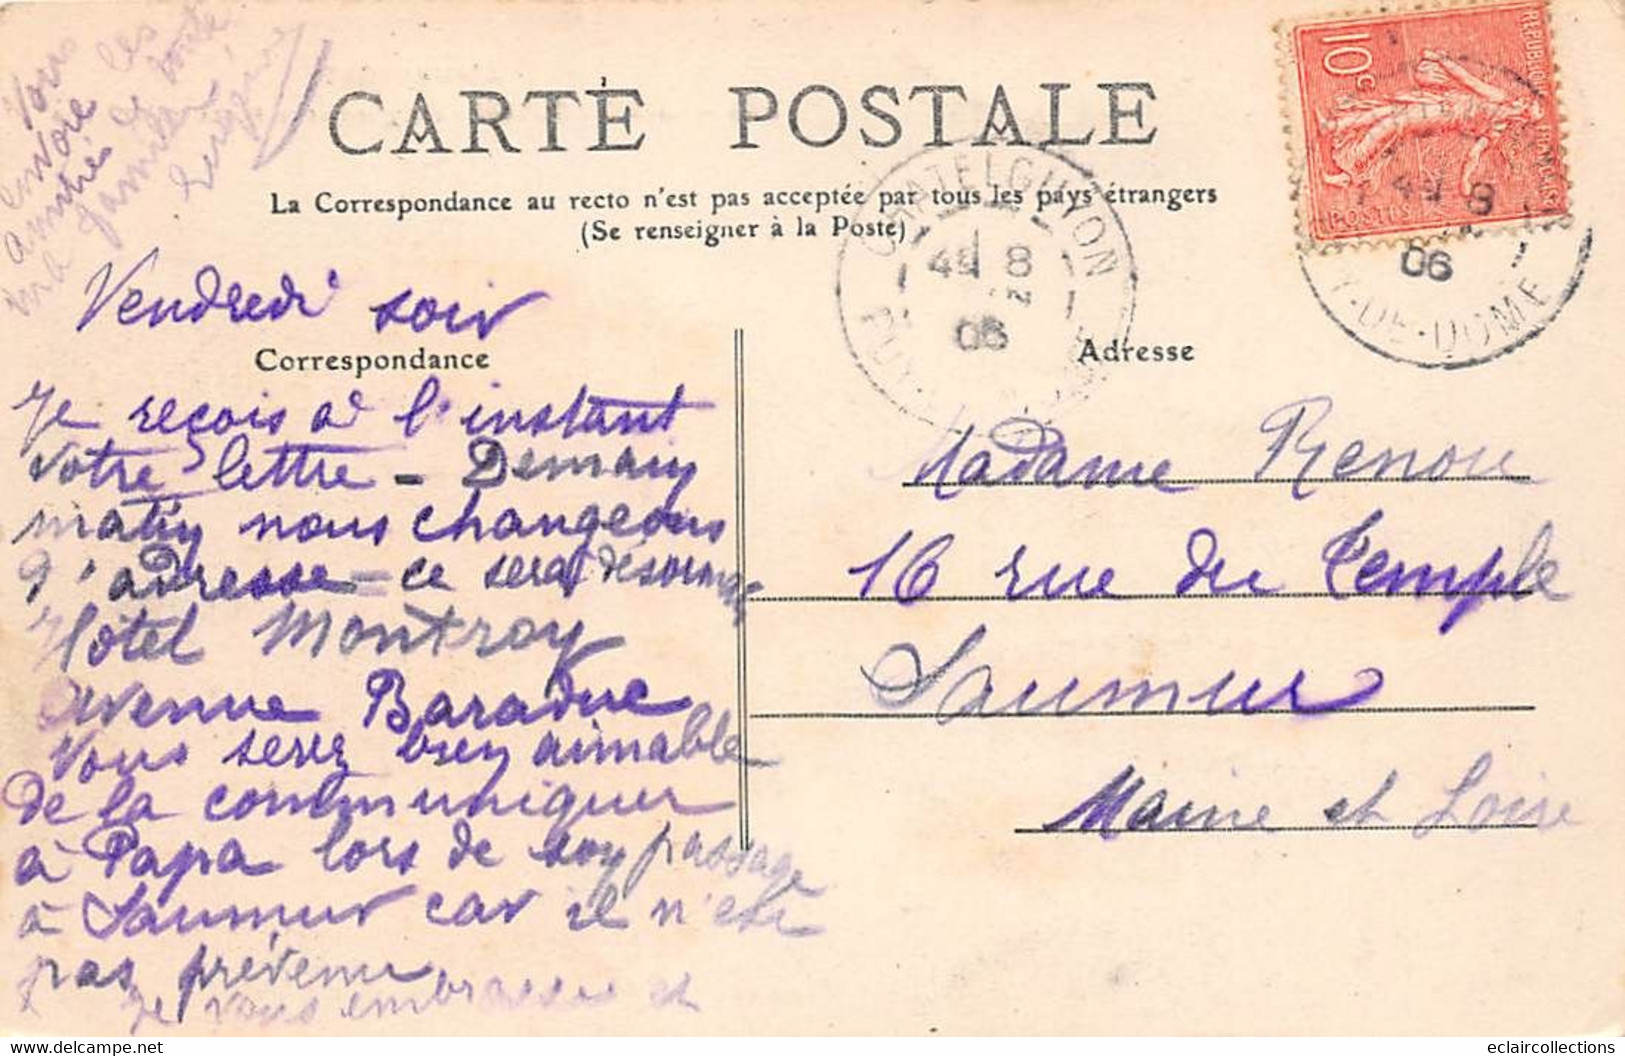 CARTE POSTALE
La Correspondance au recto n'est pas acceptée par tous les pays étrangers
(Se renseigner à la Poste)
REPUBLIQUE FRANÇAISE
10c
POSTES
CHATELGUYON
8
06
PUY
8
06
Y-DE-DOME
Vendredi soir
Correspondance
Je reçois à l'instant
votre lettre - Demain
matin nous changeons
d'adresse - ce sera désormais
Hôtel Montroy
avenue Baraduc
Vous serez bien aimable
de la communiquer
à Papa lors de son passage
à Saumur car il n'est
pas prévenu
Je vous embrasse et
vous
envoie les
amitiés de toute
ma famille
Adresse
Madame Renou
16 rue du Temple
Saumur
Maine et Loire
eclaircollections